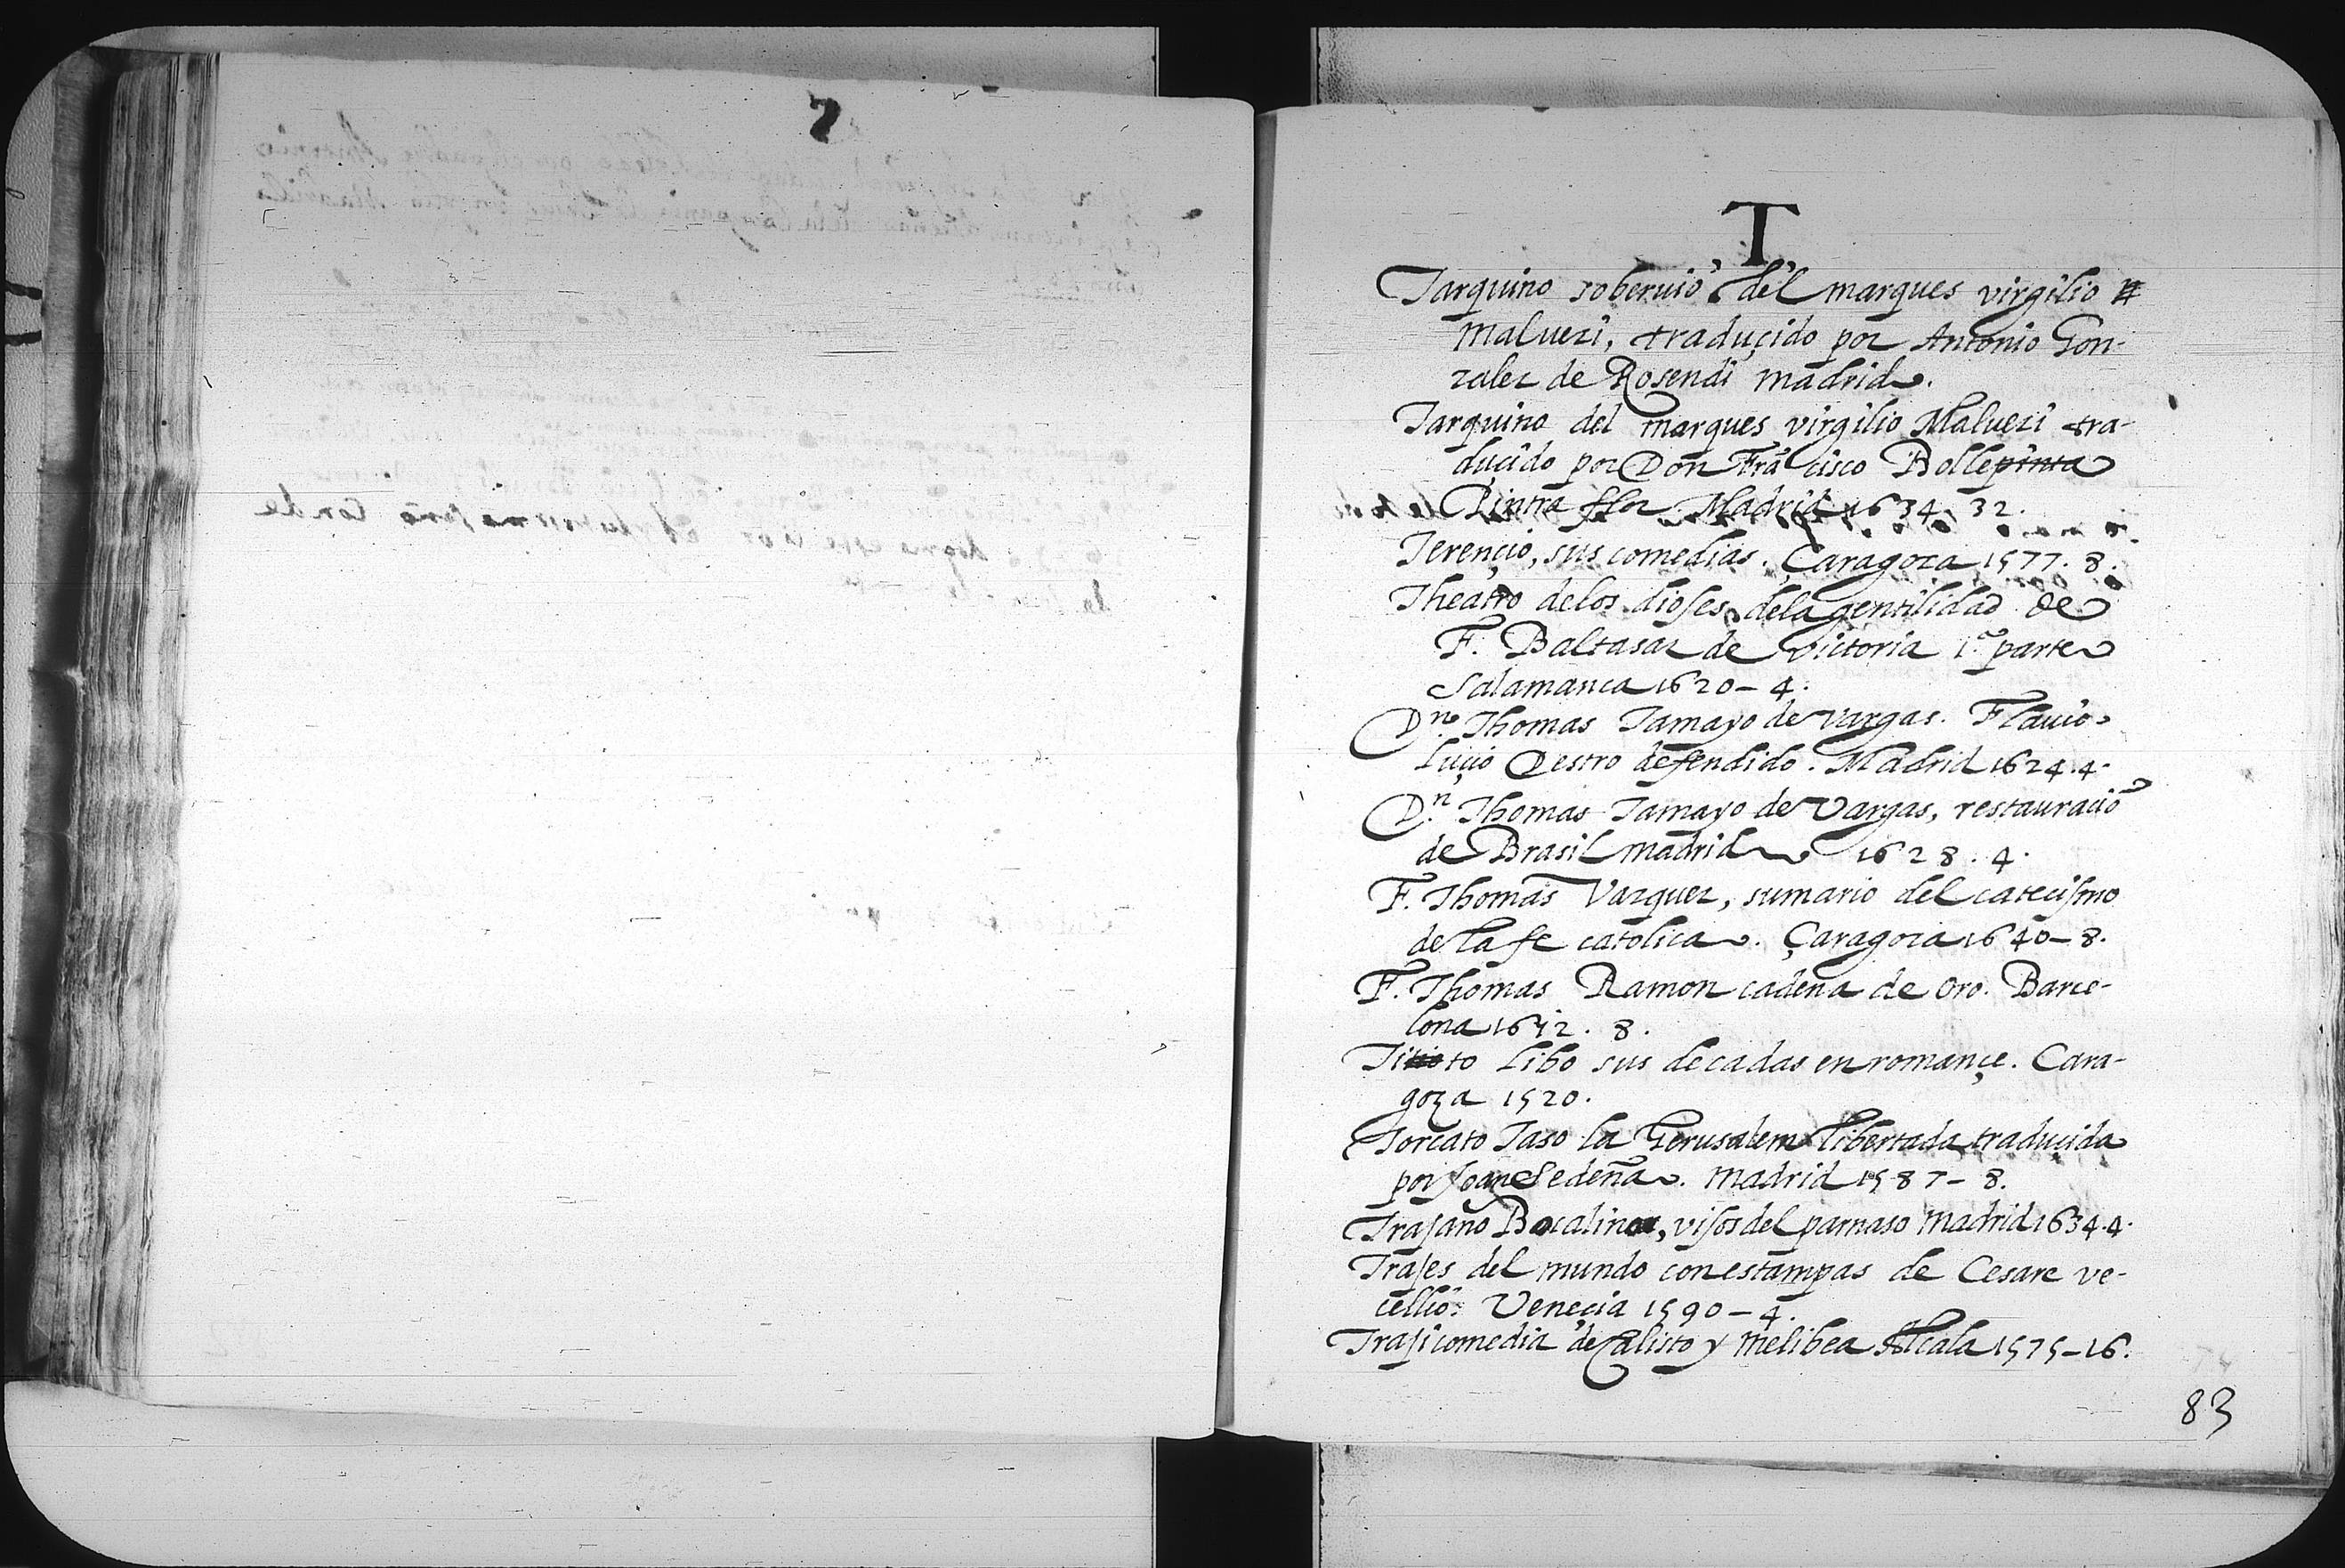 T
Tarquino soberuio, del marques virgilio
Maluezi, traduçido por Antonio Gon-
zalez de Rosendi Madrid.
Tarquino del marques virgilio Maluezi tra-
duçido por Don Frãcisco Bolle pinta
Pintra flor Madrid 1634. 32.
Terençio, sus comedias. Çaragoza 1577. 8.
Theatro delos dioses dela gentilidad de
F. Baltasar de victoria 1.ª parte
Salamanca 1620 – 4.
Dn. Thomas Tamayo de vargas. Flauio
luçio Destro defendido. Madrid 1624. 4.
Dn. Thomas Tamayo de Vargas, restauraciõ
de Brasil Madrid 1628. 4.
F. Thomas Vazquez, sumario del catecismo
de la fe catolica. Çaragoza 1640 – 8.
F. Thomas Ramon cadena de oro. Barce-
lona 1612. 8.
Tito Libo sus decadas en romançe. Cara-
goza 1520.
Torcato Taso la Gerusalem libertada traduçida
por Joan Sedeña. Madrid 1587 – 8.
Trajano Bocalino, visos del parnaso Madrid 1634. 4.
Trajes del mundo con estampas de Cesare ve-
cellio. Veneçia 1590 – 4.
Trajicomedia de Calisto y Melibea Alcala 1575 – 16.
83